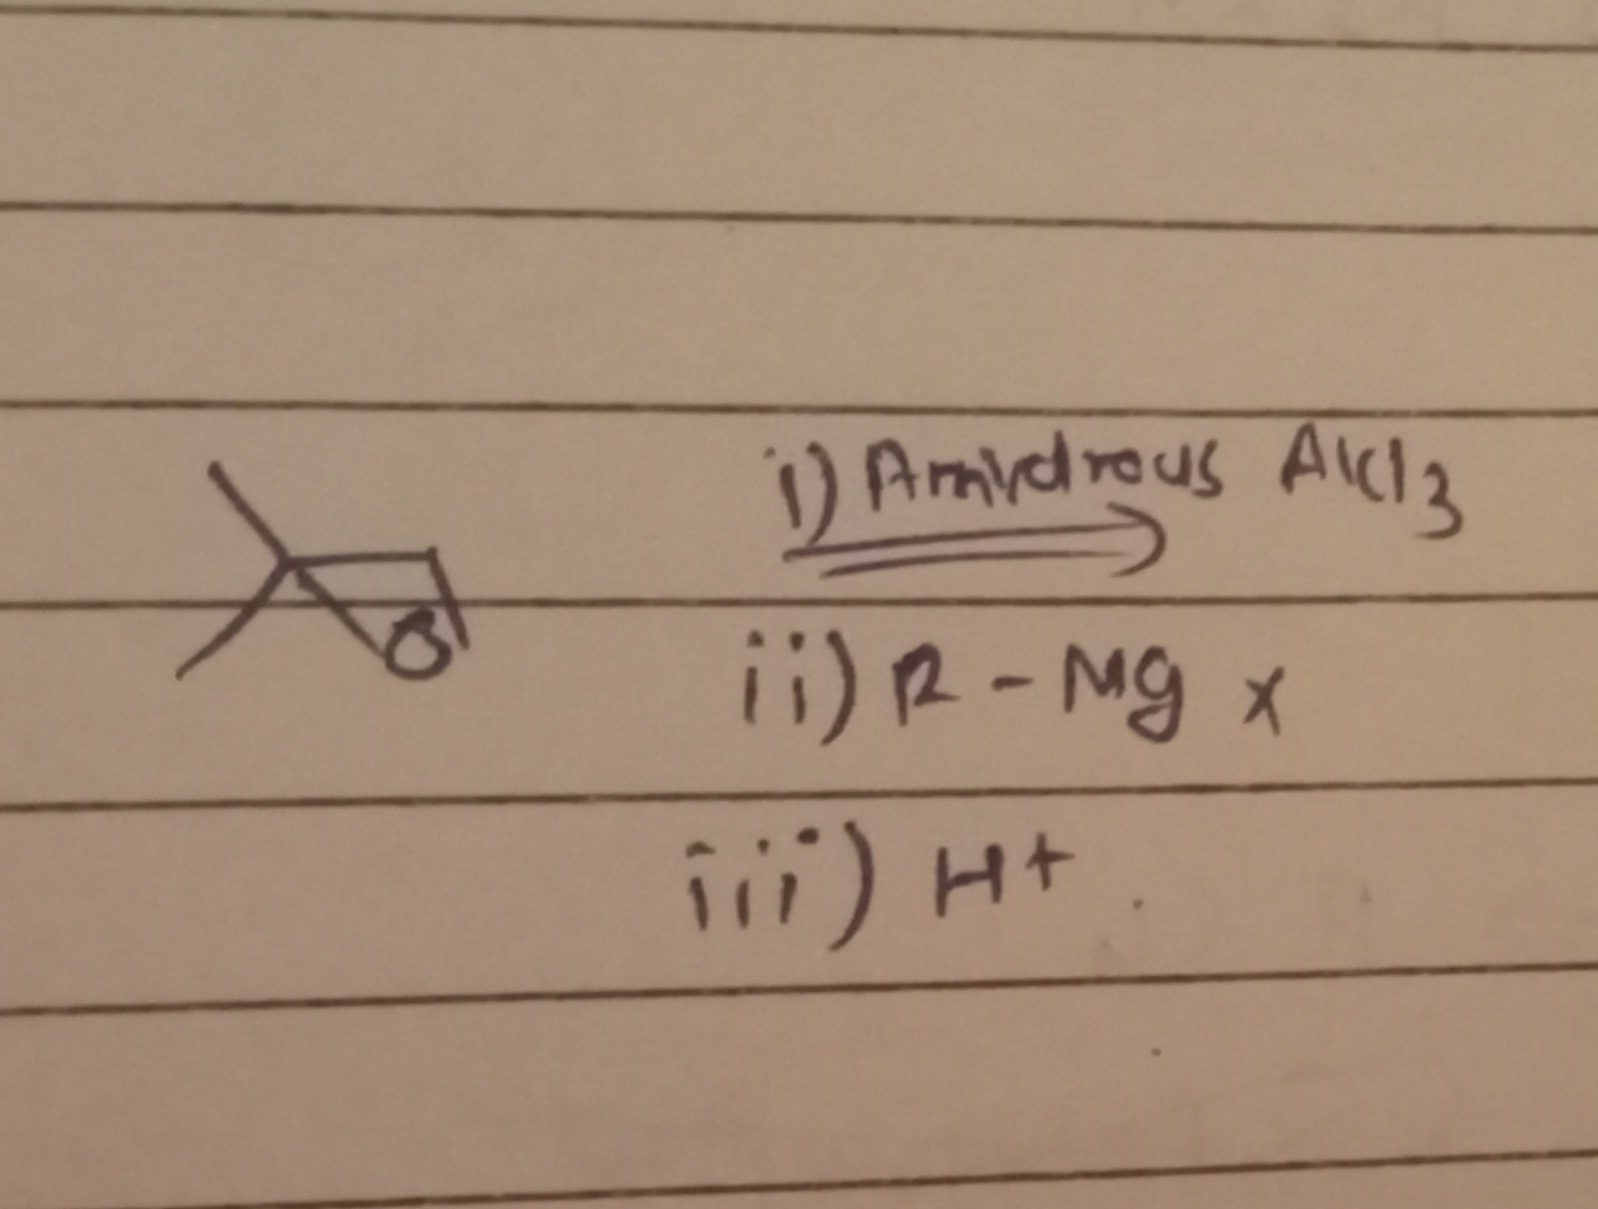 i) Anhydrous AlCl3
O
ii) R - Mg x
iii) H+